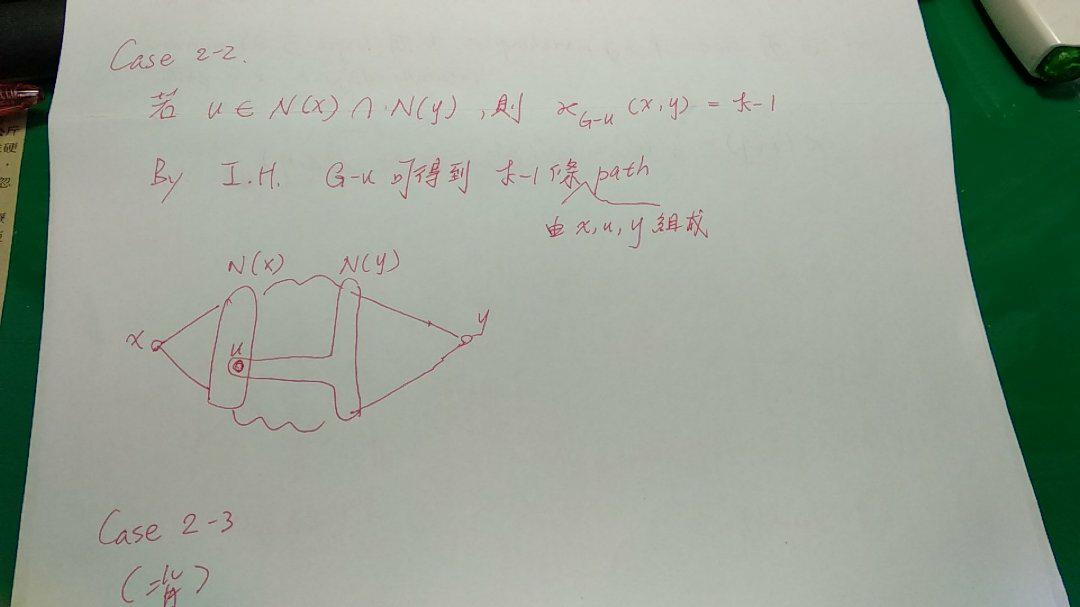 Case 2-2.
若 u ∈ N(x) ∩ N(y), 則 κ_{G-u}(x,y) = k-1
By I.H. G-u 可得到 k-1 條 path
由 x, u, y 組成
N(x) N(y)
x u y
Case 2-3